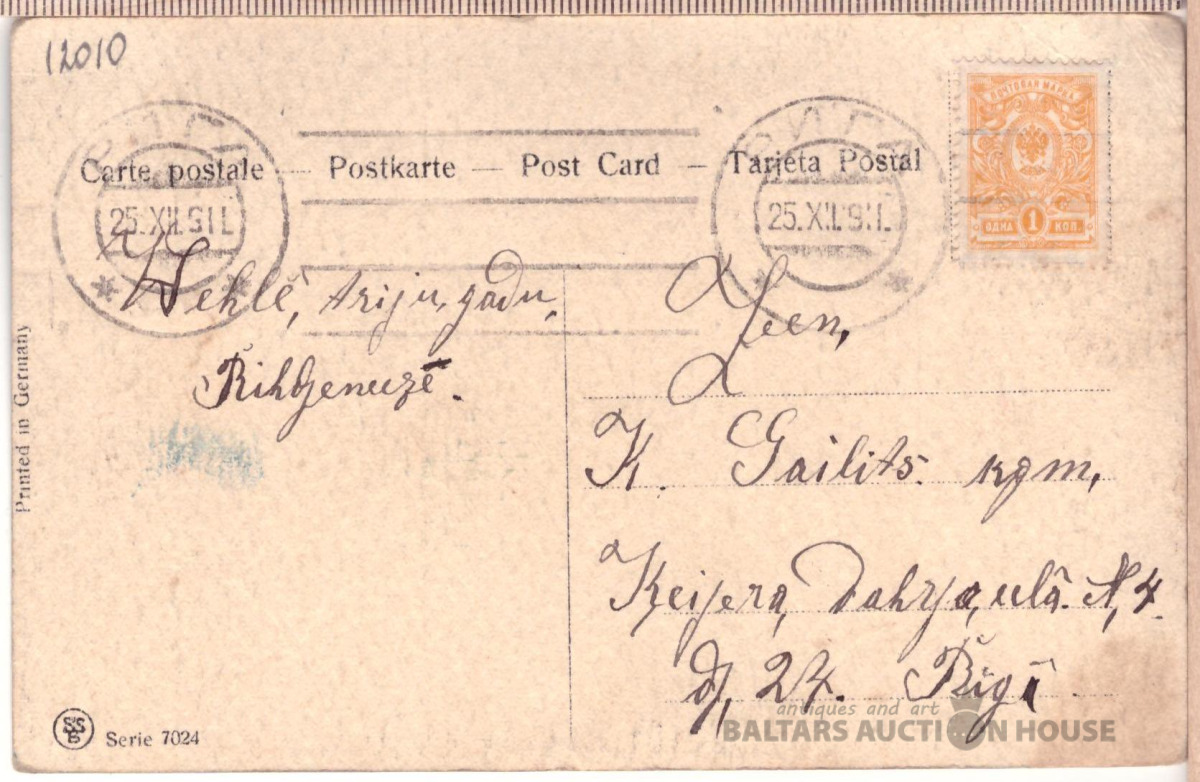 12010
РИГА
РИГА
ПОЧТОВАЯ МАРКА
Carte postale — Postkarte — Post Card — Tarjeta Postal
25.XII.911.
25.XII.911.
ОДНА 1 КОП.
Wehlē, triju, gadu,
Leen,
K. Gailits. kgm,
Keisera, Dahrza, ulā. N, 4.
dz, 24. Rīgā
Printed in Germany
SSB
Serie 7024
antiques and art
BALTARS AUCTION HOUSE